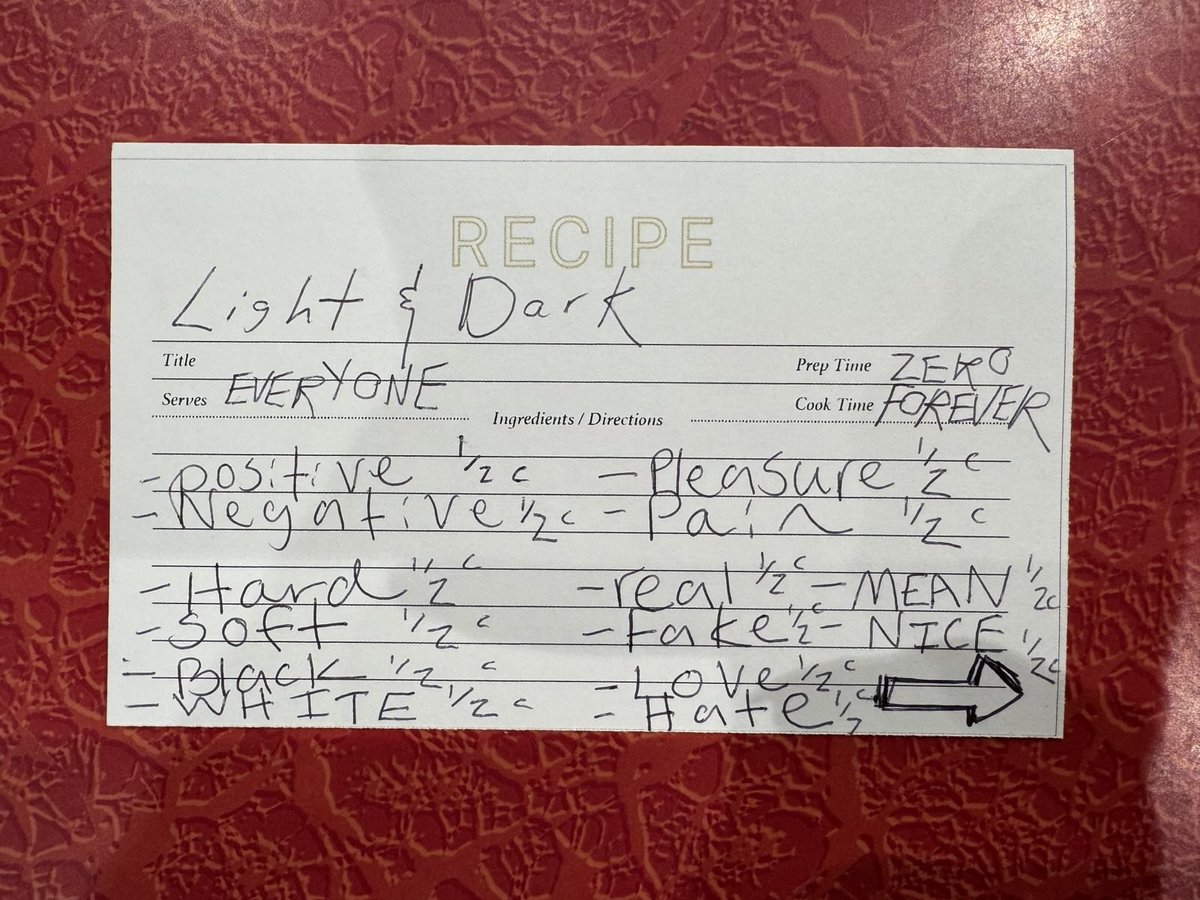 RECIPE
Light & Dark
Title
Prep Time ZERO
Serves EVERYONE
Cook Time FOREVER
Ingredients / Directions
- Positive 1/2 c - Pleasure 1/2 c
- Negative 1/2 c - Pain 1/2 c
- Hard 1/2 c - real 1/2 c - MEAN 1/2 c
- Soft 1/2 c - Fake 1/2 c - NICE 1/2 c
- Black 1/2 c - Love 1/2 c
- WHITE 1/2 c - Hate 1/2 c